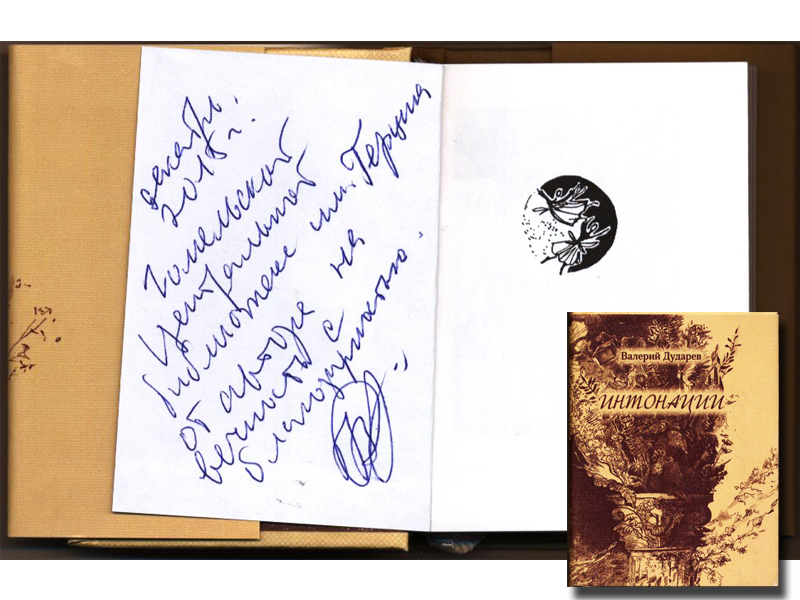 декабрь
2015 г.
Гомельской
Центральной
библиотеке им. Герцена
от автора на
вечность с
благодарностью.
Валерий Дударев
ИНТОНАЦИИ